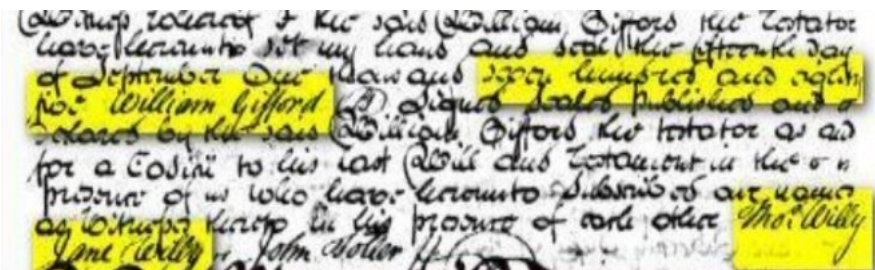 Witness whereof I the said William Gifford the Testator
have hereunto set my hand and seal the fifteenth day
of September One thousand seven hundred and eighty
five William Gifford Signed Sealed Published and
Declared by the said William Gifford the Testator as and
for a Codicil to his Last Will and Testament in the
presence of us who have hereunto subscribed our names
as Witnesses thereto in his presence of each other Thos. Willy
Jane Willy John